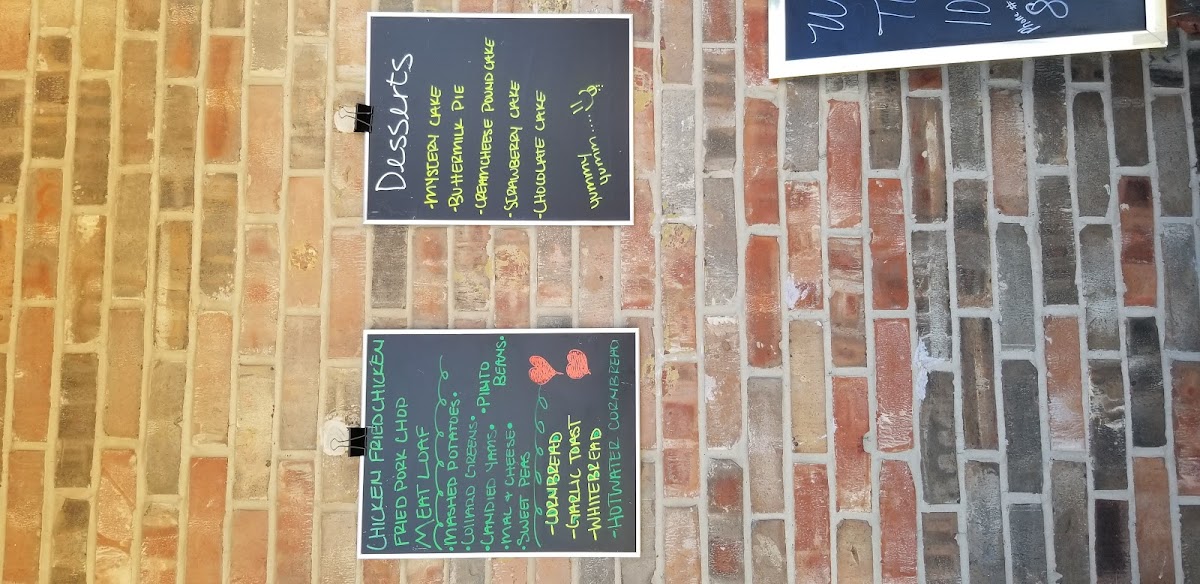 Desserts
-MYSTERY CAKE
-BUTTERMILK PIE
-CREAMCHEESE POUNDCAKE
-STRAWBERRY CAKE
-CHOCOLATE CAKE
yummy
yumm....
CHICKEN FRIED CHICKEN
FRIED PORK CHOP
MEAT LOAF
•MASHED POTATOES•
•COLLARD GREENS•
•CANDIED YAMS•
•PINTO BEANS•
•MAC & CHEESE•
•SWEET PEAS
-CORNBREAD
-GARLIC TOAST
-WHITEBREAD
-HOTWATER CORNBREAD
10
Phone #
8